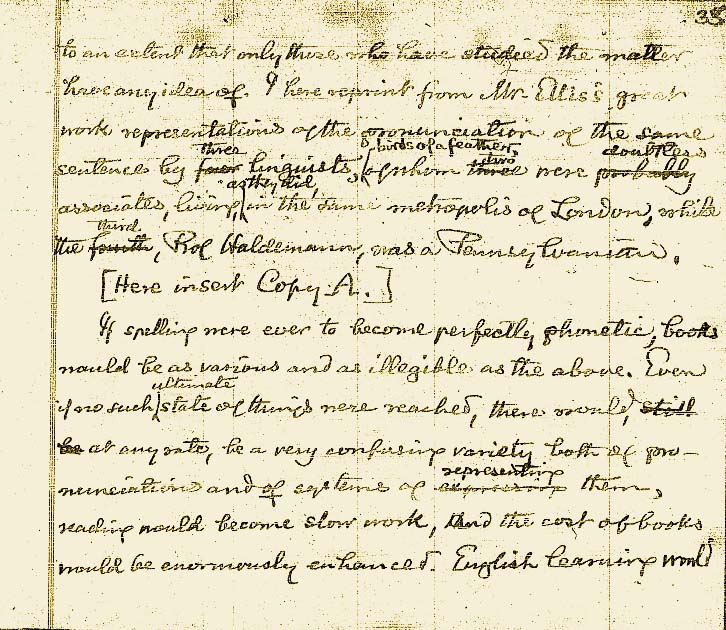 35
to an extent that only those who have studied the matter
have any idea of. I here reprint from Mr. Ellis's great
work representations of the pronunciation of the same
three birds of a feather, doubtless
sentences by four linguists, of whom three two were probably
as they did,
associates, living in the same metropolis of London, while
third
the fourth, Prof Haldemann, was a Pennsylvanian.
[Here insert Copy A.]
If spelling were ever to become perfectly phonetic, books
would be as various and as illegible as the above. Even
ultimate
if no such state of things were reached, there would, still
be at any rate, be a very confusing variety both of pro-
representing
nunciations and of systems of expressing them,
reading would become slow work, And the cost of books
would be enormously enhanced. English learning would